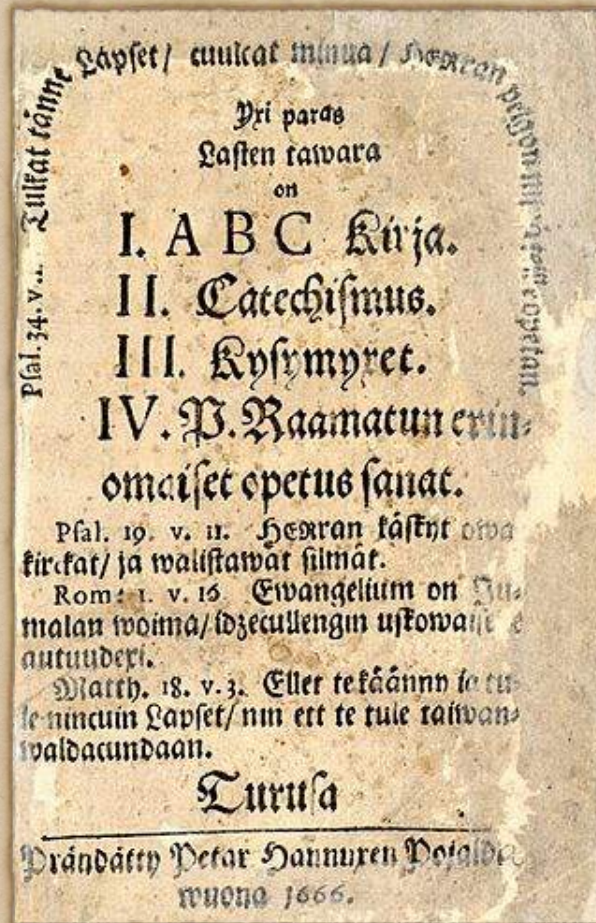 Psal. 34. v Tulkat tänne Lapset/ cuulcat minua/ HERran pelgon
Yxi paras
Lasten tawara
on
I. A B C Kirja.
II. Catechismus.
III. Kysymyxet.
IV. P. Raamatun erin-
omaiset opetus sanat.
Psal. 19. v. 11. HERran käskyt owa
kirckat/ ja walistawat silmät.
Rom: 1. v. 16. Ewangelium on Ju-
malan woima/ idzecullengin
autuudexi.
Matth. 18. v. 3. Ellet te käänny ja tu-
le nincuin Lapset/ nin ett te tule taiwan-
waldacundaan.
Turusa
Prändätty Petar Hannuxen Pojalda
wuona 1666.